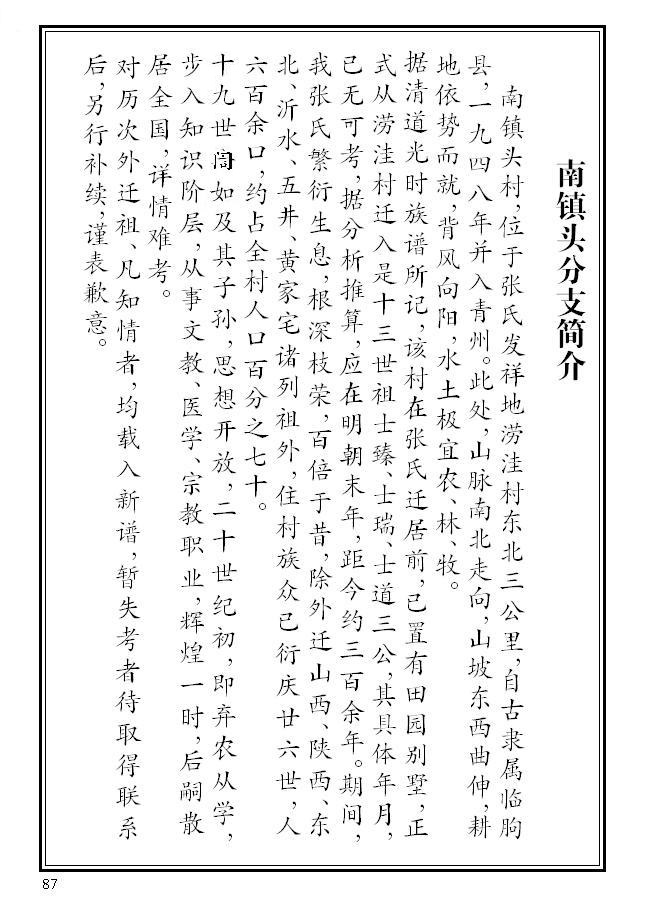 南镇头分支简介
南镇头村，位于张氏发祥地涝洼村东北三公里，自古隶属临朐
县，一九四八年并入青州。此处，山脉南北走向，山坡东西曲伸，耕
地依势而就，背风向阳，水土极宜农、林、牧。
据清道光时族谱所记，该村在张氏迁居前，已置有田园别墅，正
式从涝洼村迁入是十三世祖士臻、士瑞、士道三公，其具体年月，
已无可考，据分析推算，应在明朝末年，距今约三百余年。期间，
我张氏繁衍生息，根深枝荣，百倍于昔，除外迁山西、陕西、东
北、沂水、五井、黄家宅诸列祖外，住村族众已衍庆廿六世，人
六百余口，约占全村人口百分之七十。
十九世訚如及其子孙，思想开放，二十世纪初，即弃农从学，
步入知识阶层，从事文教、医学、宗教职业，辉煌一时，后嗣散
居全国，详情难考。
对历次外迁祖、凡知情者，均载入新谱，暂失考者待取得联系
后，另行补续，谨表歉意。
87